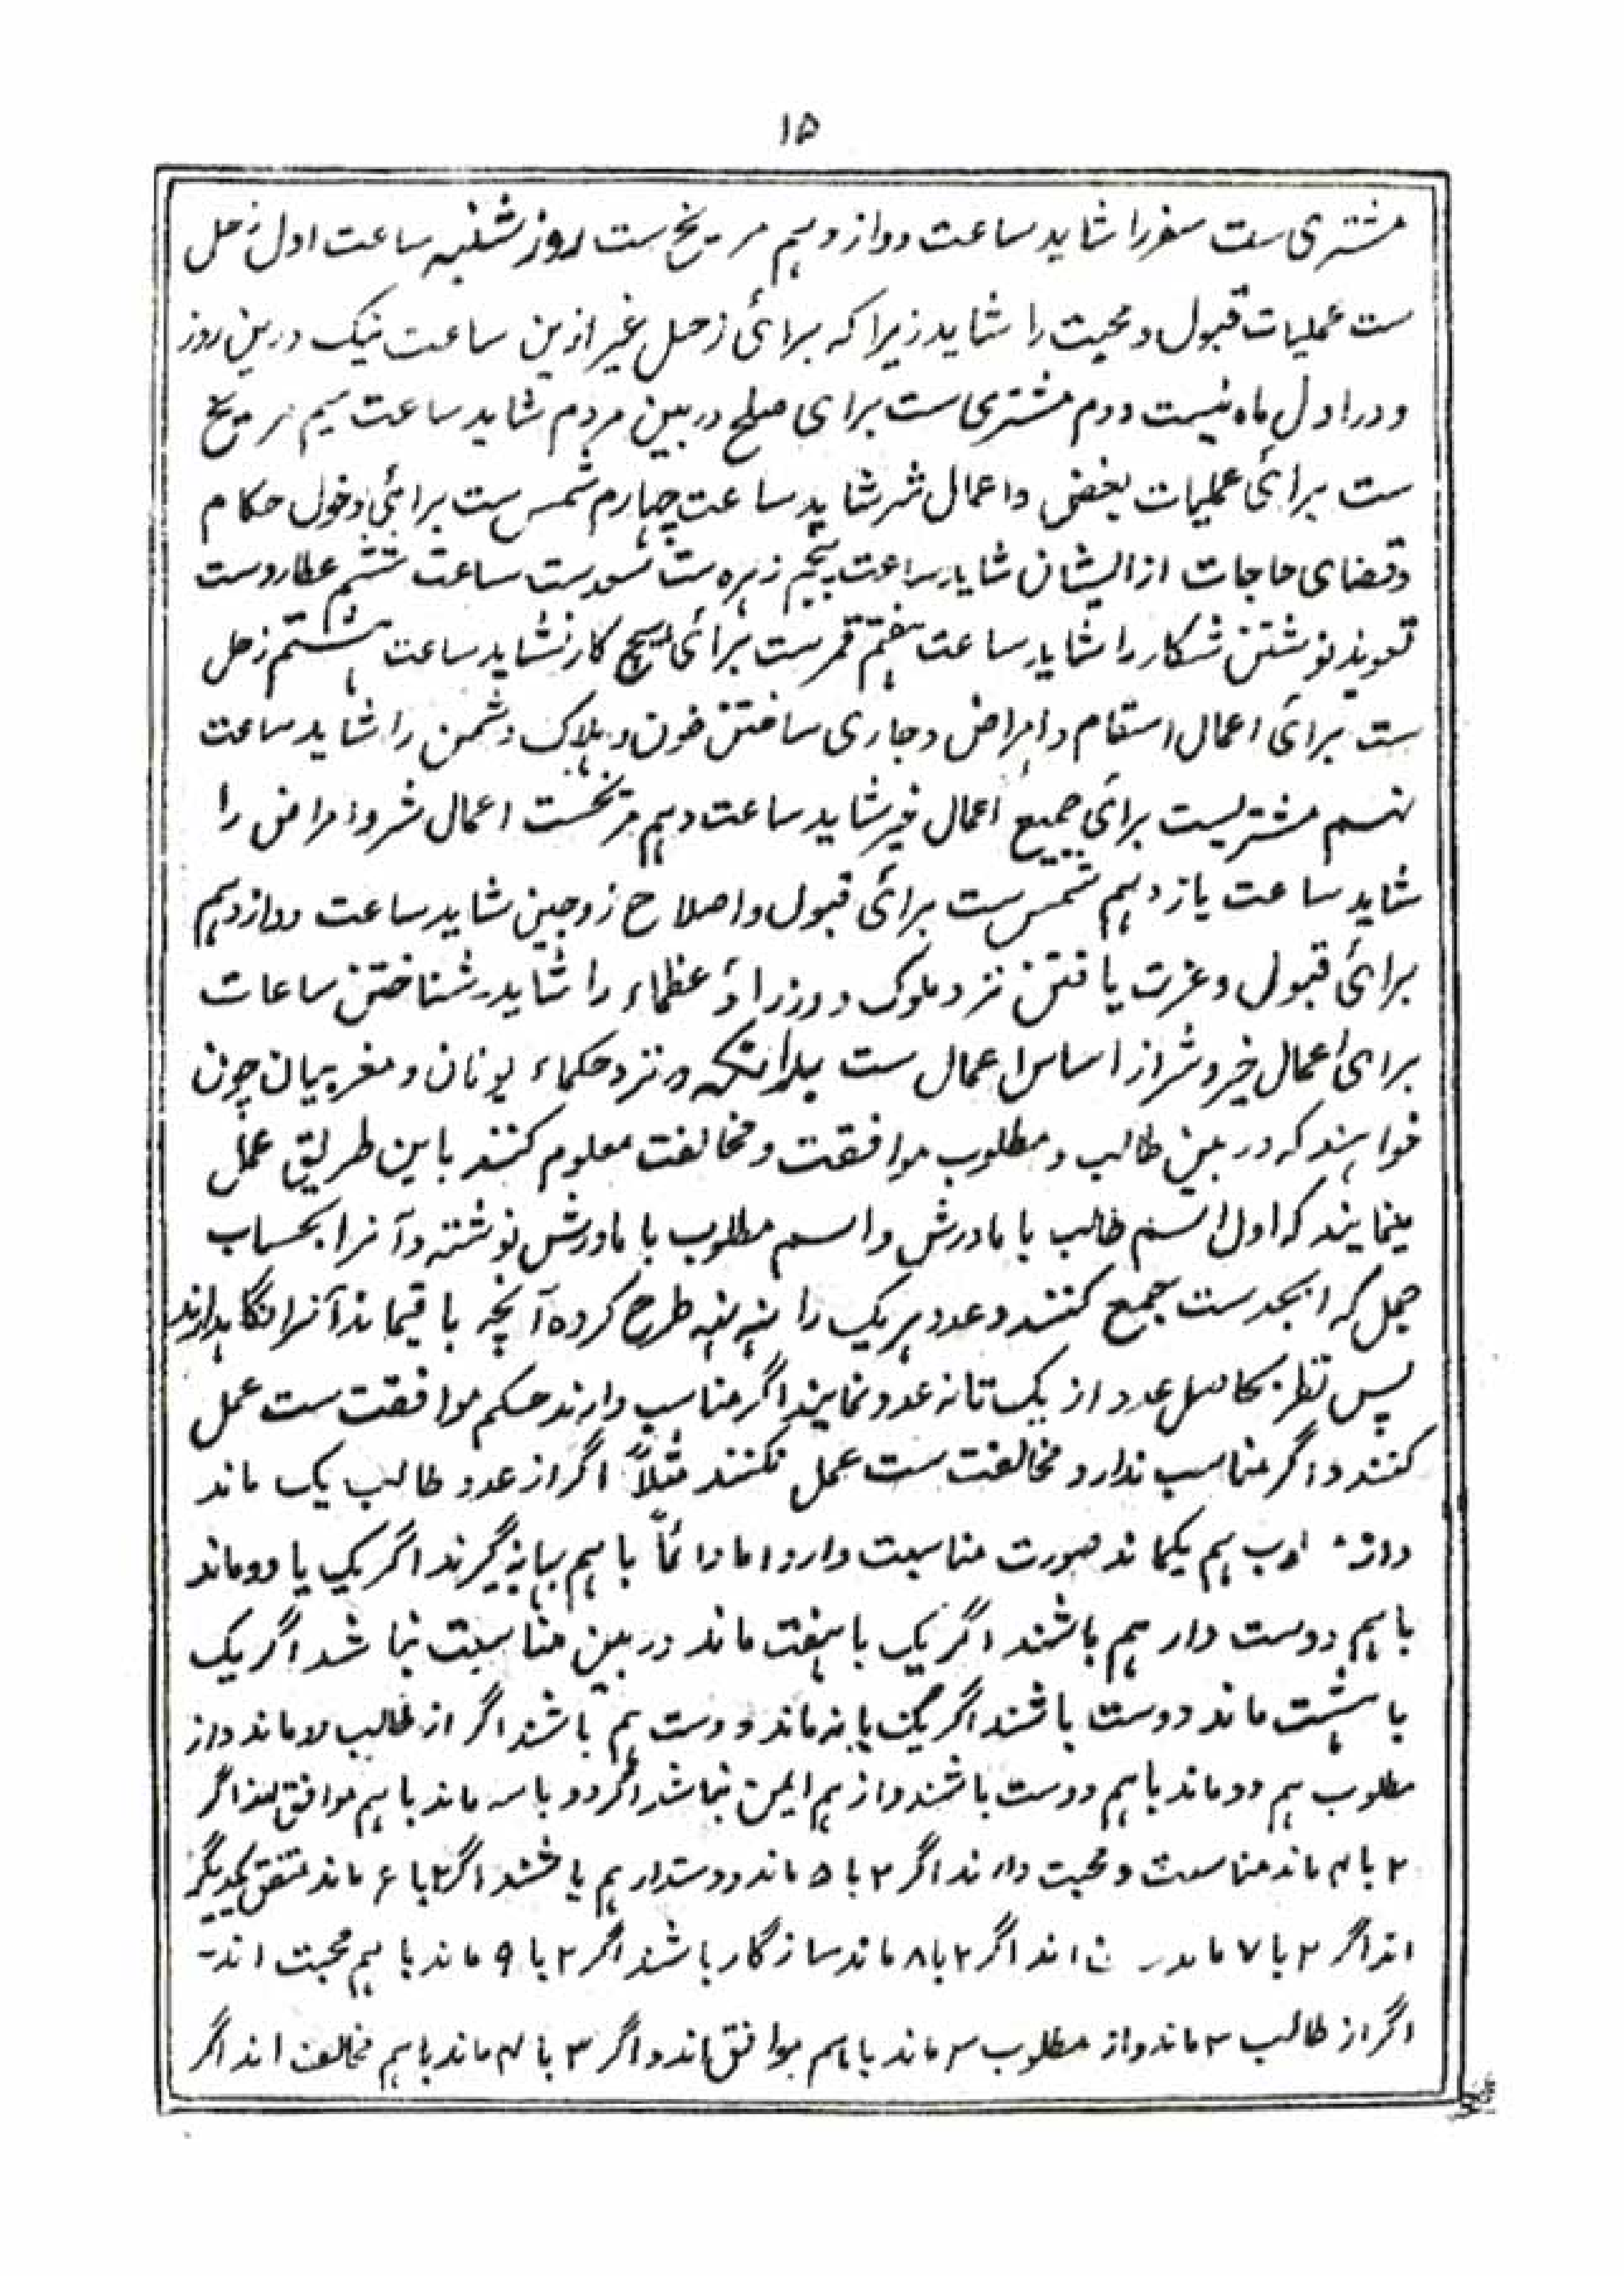 ۱۵
مشتری ست سفر را شاید ساعت دوازدهم مریخ ست روز شنبه ساعت اول زحل
ست عملیات قبول و محبت را شاید زیرا که برائ زحل غیر ازین ساعت نیک درین روز
و در اول ماه نیست دوم مشتری ست برای صلح در بین مردم شاید ساعت سیم مریخ
ست برائ عملیات بغض و اعمال شر شاید ساعت چهارم شمس ست برائ دخول حکام
و قضای حاجات از ایشان شاید ساعت پنجم زهره ست ساعت ششم عطاردست
تعویذ نوشتن شکار را شاید ساعت هفتم قمرست برائ هیچ کار نشاید ساعت هشتم زحل
ست برائ اعمال اسقام و امراض و جاری ساختن خون و هلاک دشمن را شاید ساعت
نهم مشتریست برائ جمیع اعمال خیر شاید ساعت دهم مریخست اعمال شر و امراض را
شاید ساعت یازدهم شمس ست برائ قبول و اصلاح زوجین شاید ساعت دوازدهم
برائ قبول و عزت یافتن نزد ملوک و وزرا و عظماء را شاید شناختن ساعات
برای اعمال خیر و شر از اساس اعمال ست بدانکه نزد حکماء یونان و مغربیان چون
خواهند که در بین طالب و مطلوب موافقت و مخالفت معلوم کنند باین طریق عمل
مینمایند که اول اسم طالب با مادرش و اسم مطلوب با مادرش نوشته و آنرا بحساب
جمل که ابجدست جمع کنند و عدد هریک را نه نه طرح کرده آنچه باقیماند آنرا نگاهدارند
پس نظر بحاصل عدد از یک تا نه عدد نمایند اگر مناسب دارند حکم موافقت ست عمل
کنند و اگر مناسب ندارد مخالفت ست عمل نکنند مثلاً اگر از عدد طالب یک ماند
هم یکماند صورت مناسبت دارد اما دائماً باهم بهانه گیرند اگر یک یا دو ماند
باهم دوست دار هم باشند اگر یک با هفت ماند در بین مناسبت نباشد اگر یک
با هشت ماند دوست باشند اگر یک یا نه ماند دوست هم باشند اگر از طالب ماند و از
مطلوب هم دو ماند باهم دوست باشند و از هم ایمن نباشد اگر دو با سه ماند باهم موافق اگر
۲ با ۴ ماند مناسبت و محبت دارند اگر ۲ با ۵ ماند دوستدار هم باشند اگر ۲ با ۶ ماند متفق یکدیگر
اند اگر ۲ با ۷ اند اگر ۲ با ۸ ماند سازگار باشند اگر ۲ با ۹ ماند باهم محبت اند-
اگر از طالب ۳ ماند و از مطلوب ۳ ماند باهم موافق اند و اگر ۳ با ۴ ماند باهم مخالف اند اگر